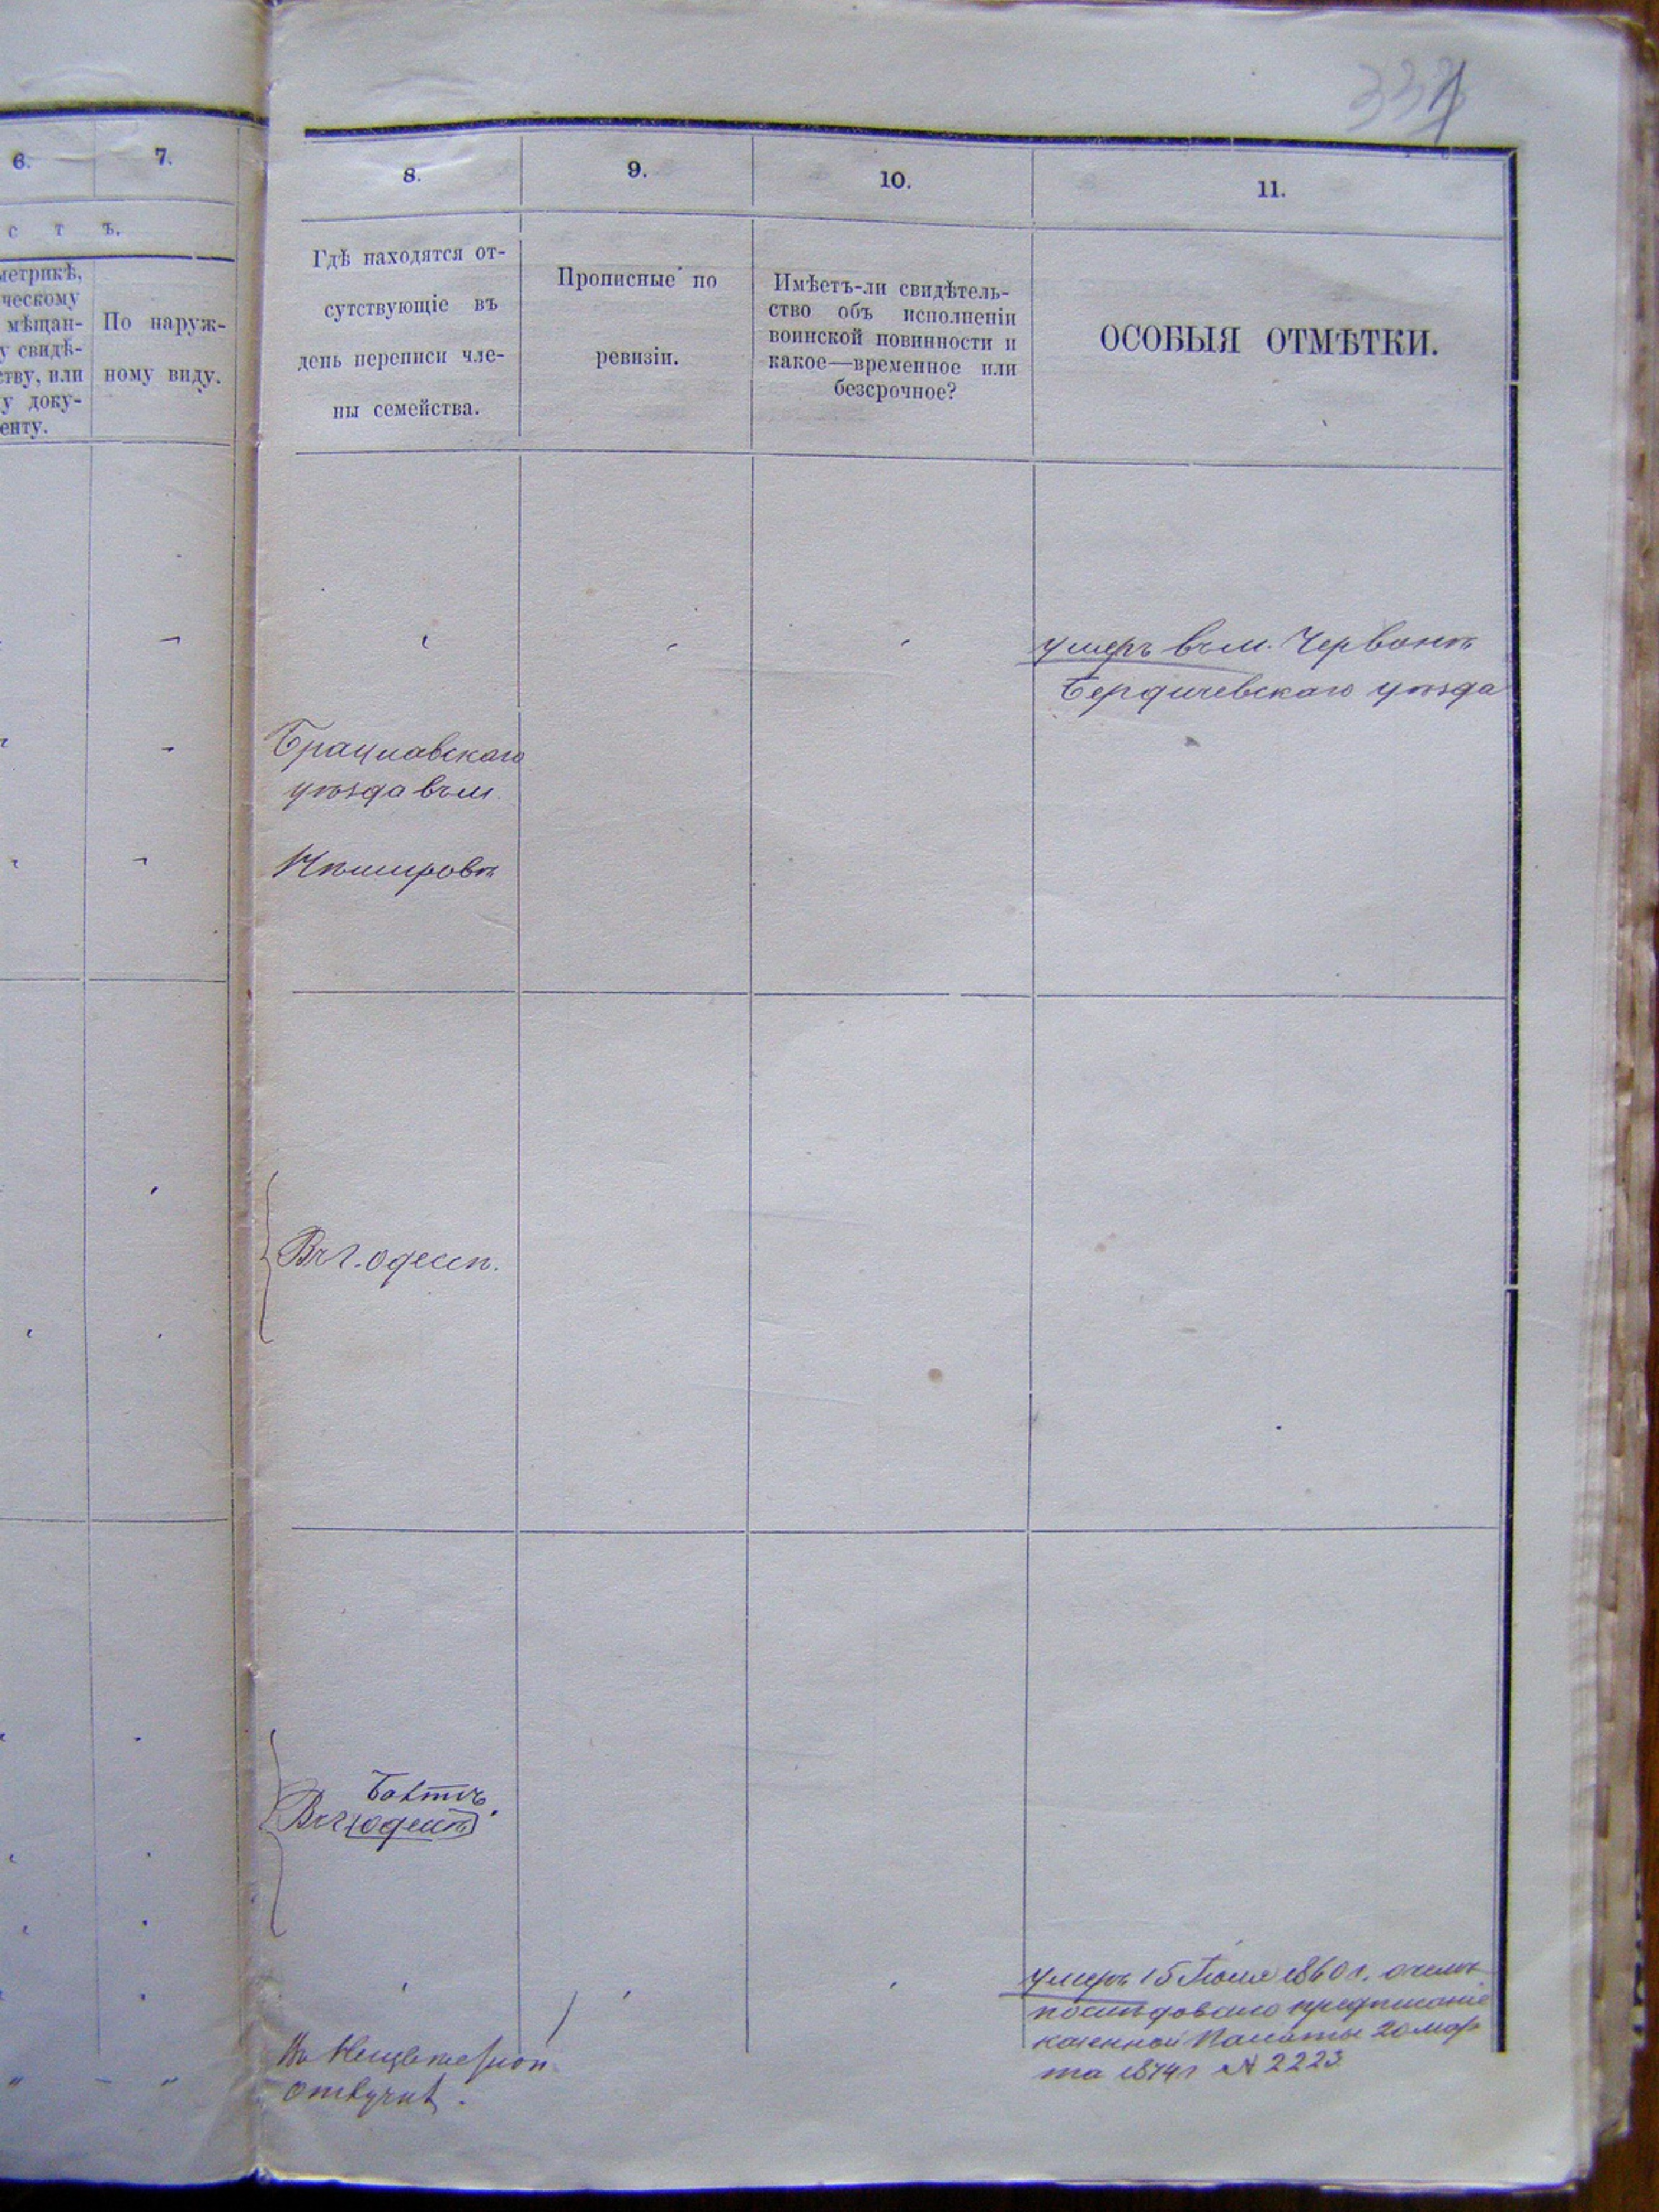 331
6.
7.
с т ъ.
метрикѣ,
ческому
мѣщан-
у свидѣ-
ству, или
у доку-
енту.
По наруж-
ному виду.
8.
9.
10.
11.
Гдѣ находятся от-
сутствующіе въ
день переписи чле-
ны семейства.
Прописные по
ревизіи.
Имѣетъ-ли свидѣтель-
ство объ исполненіи
воинской повинности и
какое—временное или
безсрочное?
ОСОБЫЯ ОТМѢТКИ.
умеръ въ м. Червонѣ
Бердичевскаго уѣзда
Брацлавскаго
уѣзда въ м.
Нѣмировѣ
Въ г. Одессѣ.
Балтѣ
Въ г. Одессѣ
умеръ 15 Іюля 1860 г. о чемъ
послѣдовало предписаніе
казенной Палаты 20 мар-
та 1874 г № 2223
отлучкѣ.